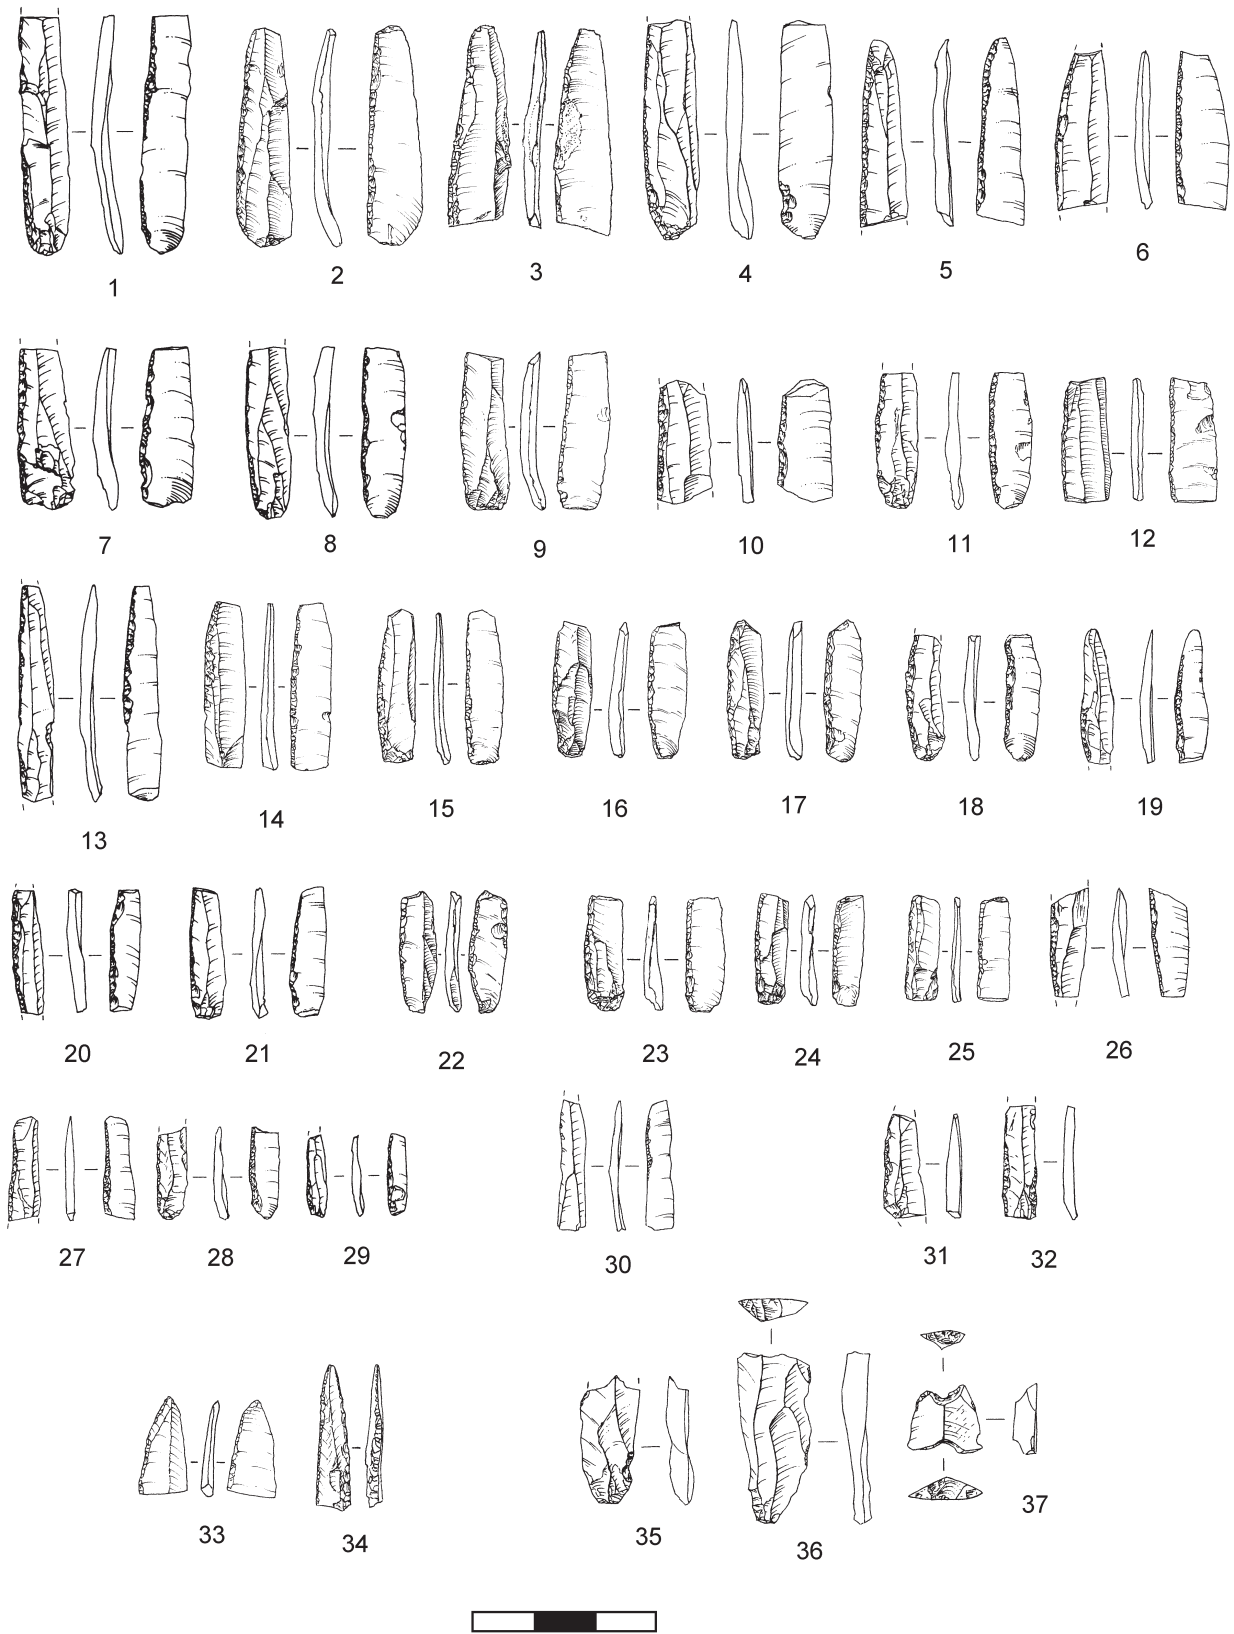 1 2 3 4 5 6
7 8 9 10 11 12
13 14 15 16 17 18 19
20 21 22 23 24 25 26
27 28 29 30 31 32
33 34 35 36 37